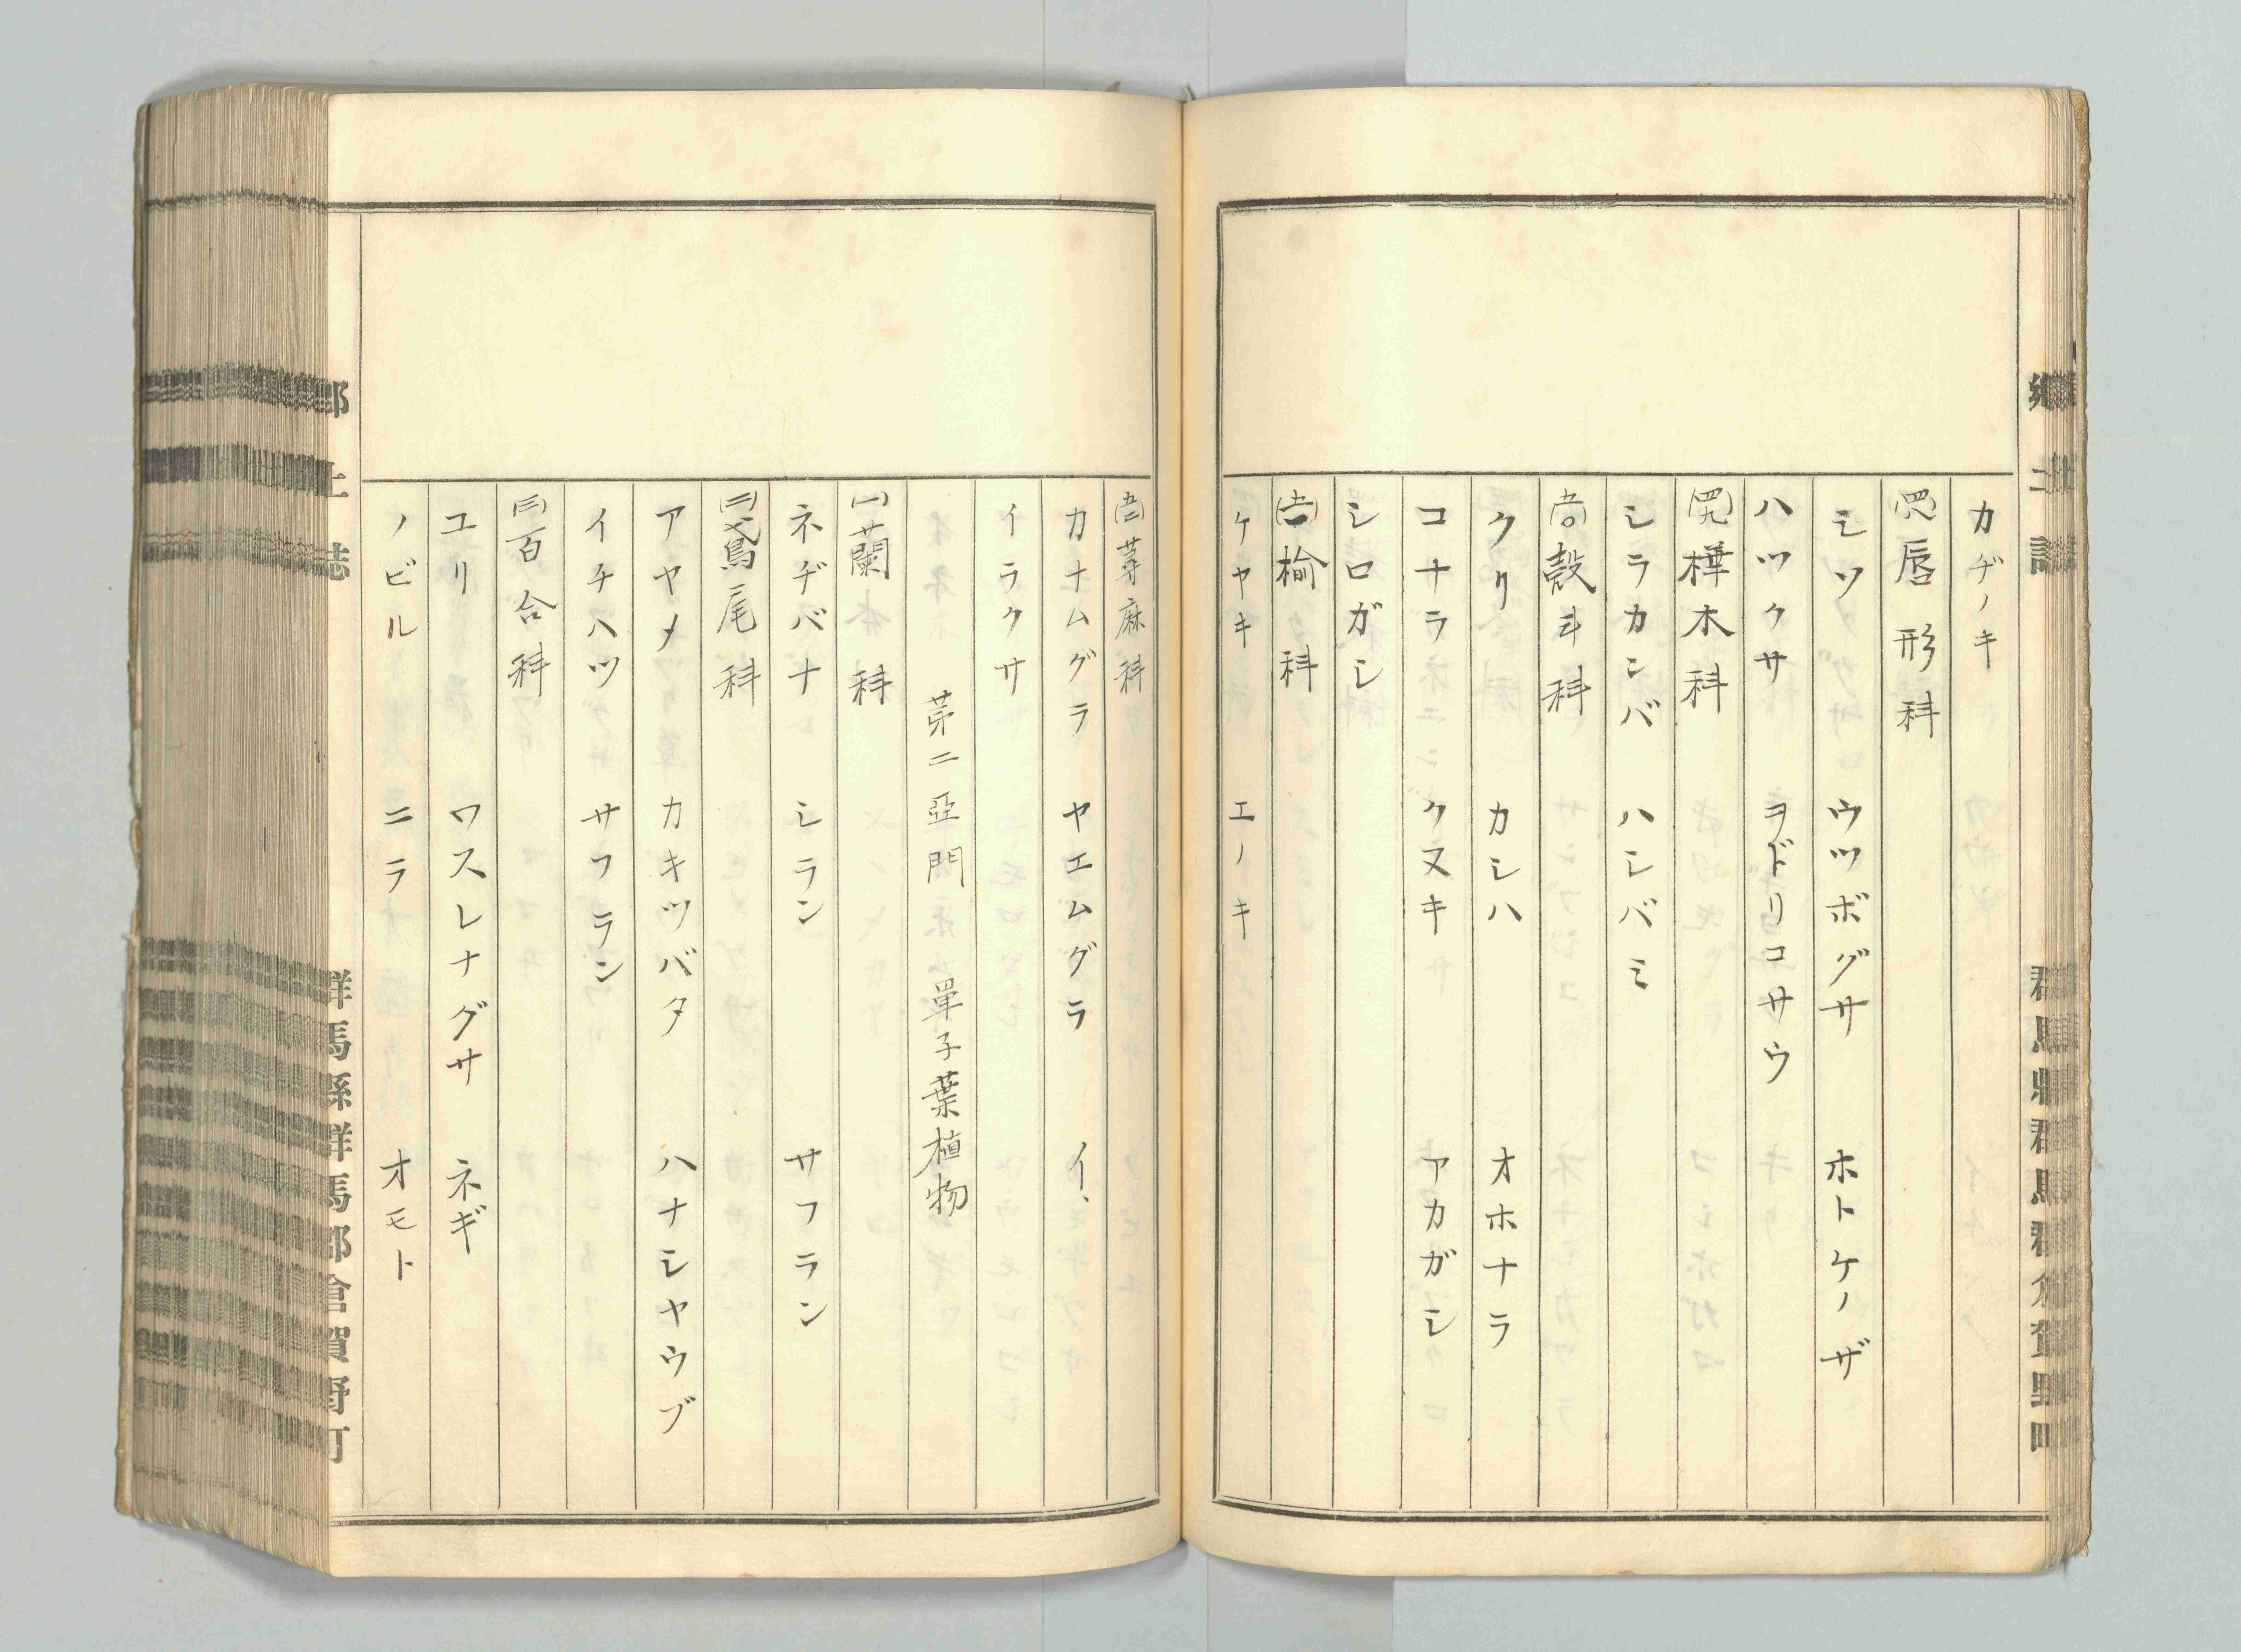 カヂノキ
(四八)唇形科
シソ ウツボグサ ホトケノザ
ハツクサ ヲドリコサウ
(四九)樺木科
シラカンバ ハシバミ
(五〇)殻斗科
クリ カシハ オホナラ
コナラ クヌキ アカガシ
シロガシ
(五一)楡科
ケヤキ エノキ
(五二)蕁麻科
カナムグラ ヤエムグラ イ、
イラクサ
第二亞門 單子葉植物
(一)蘭科
ネヂバナ シラン サフラン
(二)鳶尾科
アヤメ カキツバタ ハナシヤウブ
イチハツ サフラン
(三)百合科
ユリ ワスレナグサ ネギ
ノビル ニラ オモト
郷土誌
群馬縣群馬郡倉賀野町